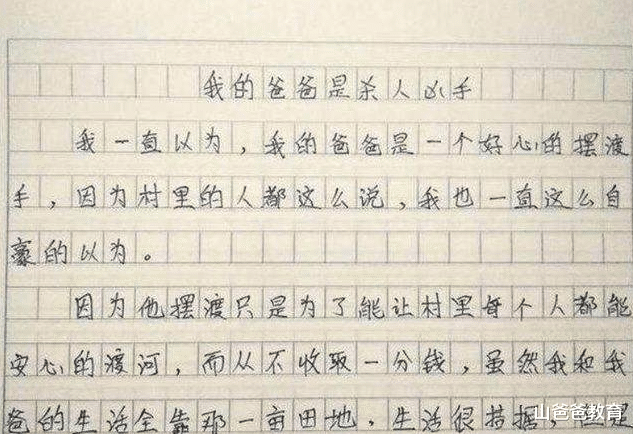 我的爸爸是杀人凶手
我一直以为，我的爸爸是一个好心的摆渡
手，因为村里的人都这么说，我也一直这么自
豪的以为。
因为他摆渡只是为了能让村里每个人都能
安心的渡河，而从不收取一分钱，虽然我和我
爸的生活全靠那一亩田地，生活很拮据，但是
山爸爸教育